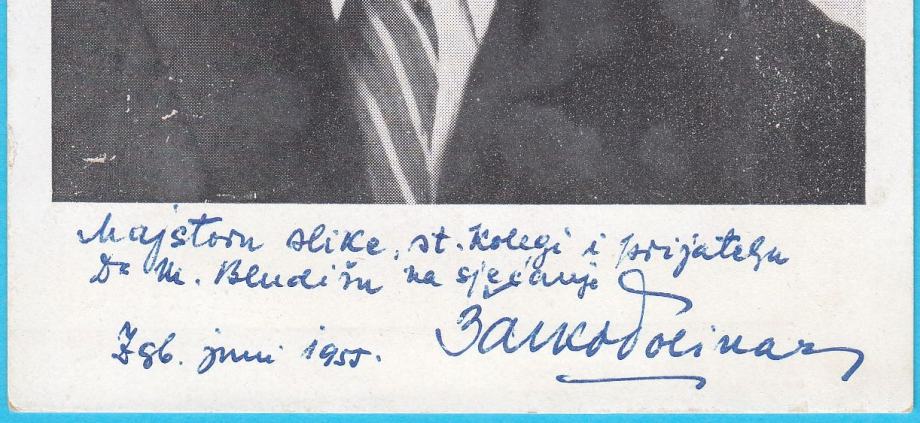 Majstoru slike, st. kolegi i prijatelju
Dr M. Bludišu na sjećanje
Zgb. juni 1955.
Žarko Dolinar